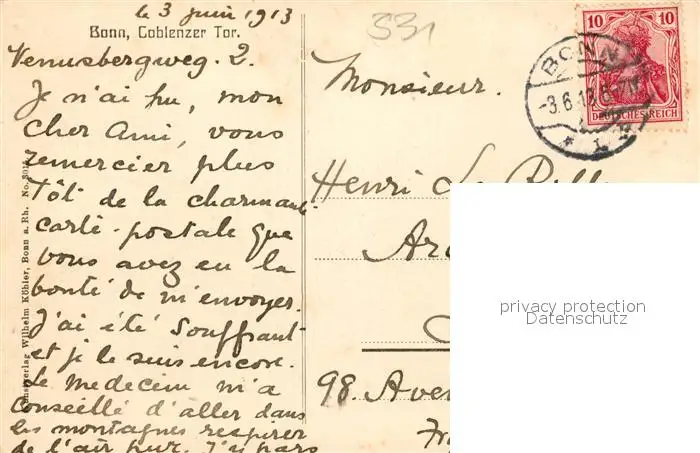 le 3 juin 1913
Bonn, Coblenzer Tor.
Venusbergweg. 2.
Je n'ai pu, mon
cher Ami, vous
remercier plus
tôt de la charmante
carte-postale que
vous avez eu la
bonté de m'envoyer.
J'ai été souffrant
et je le suis encore.
Le medecin m'a
conseillé d'aller dans
les montagnes respirer
de l'air pur. J'y pars
Kunstverlag Wilhelm Köhler, Bonn a. Rh. No.
531
Monsieur.
Henri
98. Ave
10 10
DEUTSCHES REICH
BONN
3.6.13
privacy protection
Datenschutz